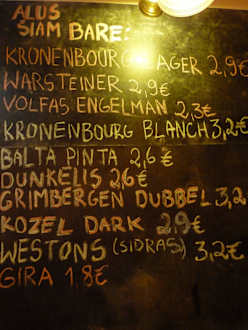 ALUS
SIAM BARE:
KRONENBOURG LAGER 2,9€
WARSTEINER 2,9€
VOLFAS ENGELMAN 2,3€
KRONENBOURG BLANCH 3,2€
BALTA PINTA 2,6€
DUNKELIS 2,6€
GRIMBERGEN DUBBEL 3,2
KOZEL DARK 2,9€
WESTONS (SIDRAS) 3,2€
GIRA 1,8€